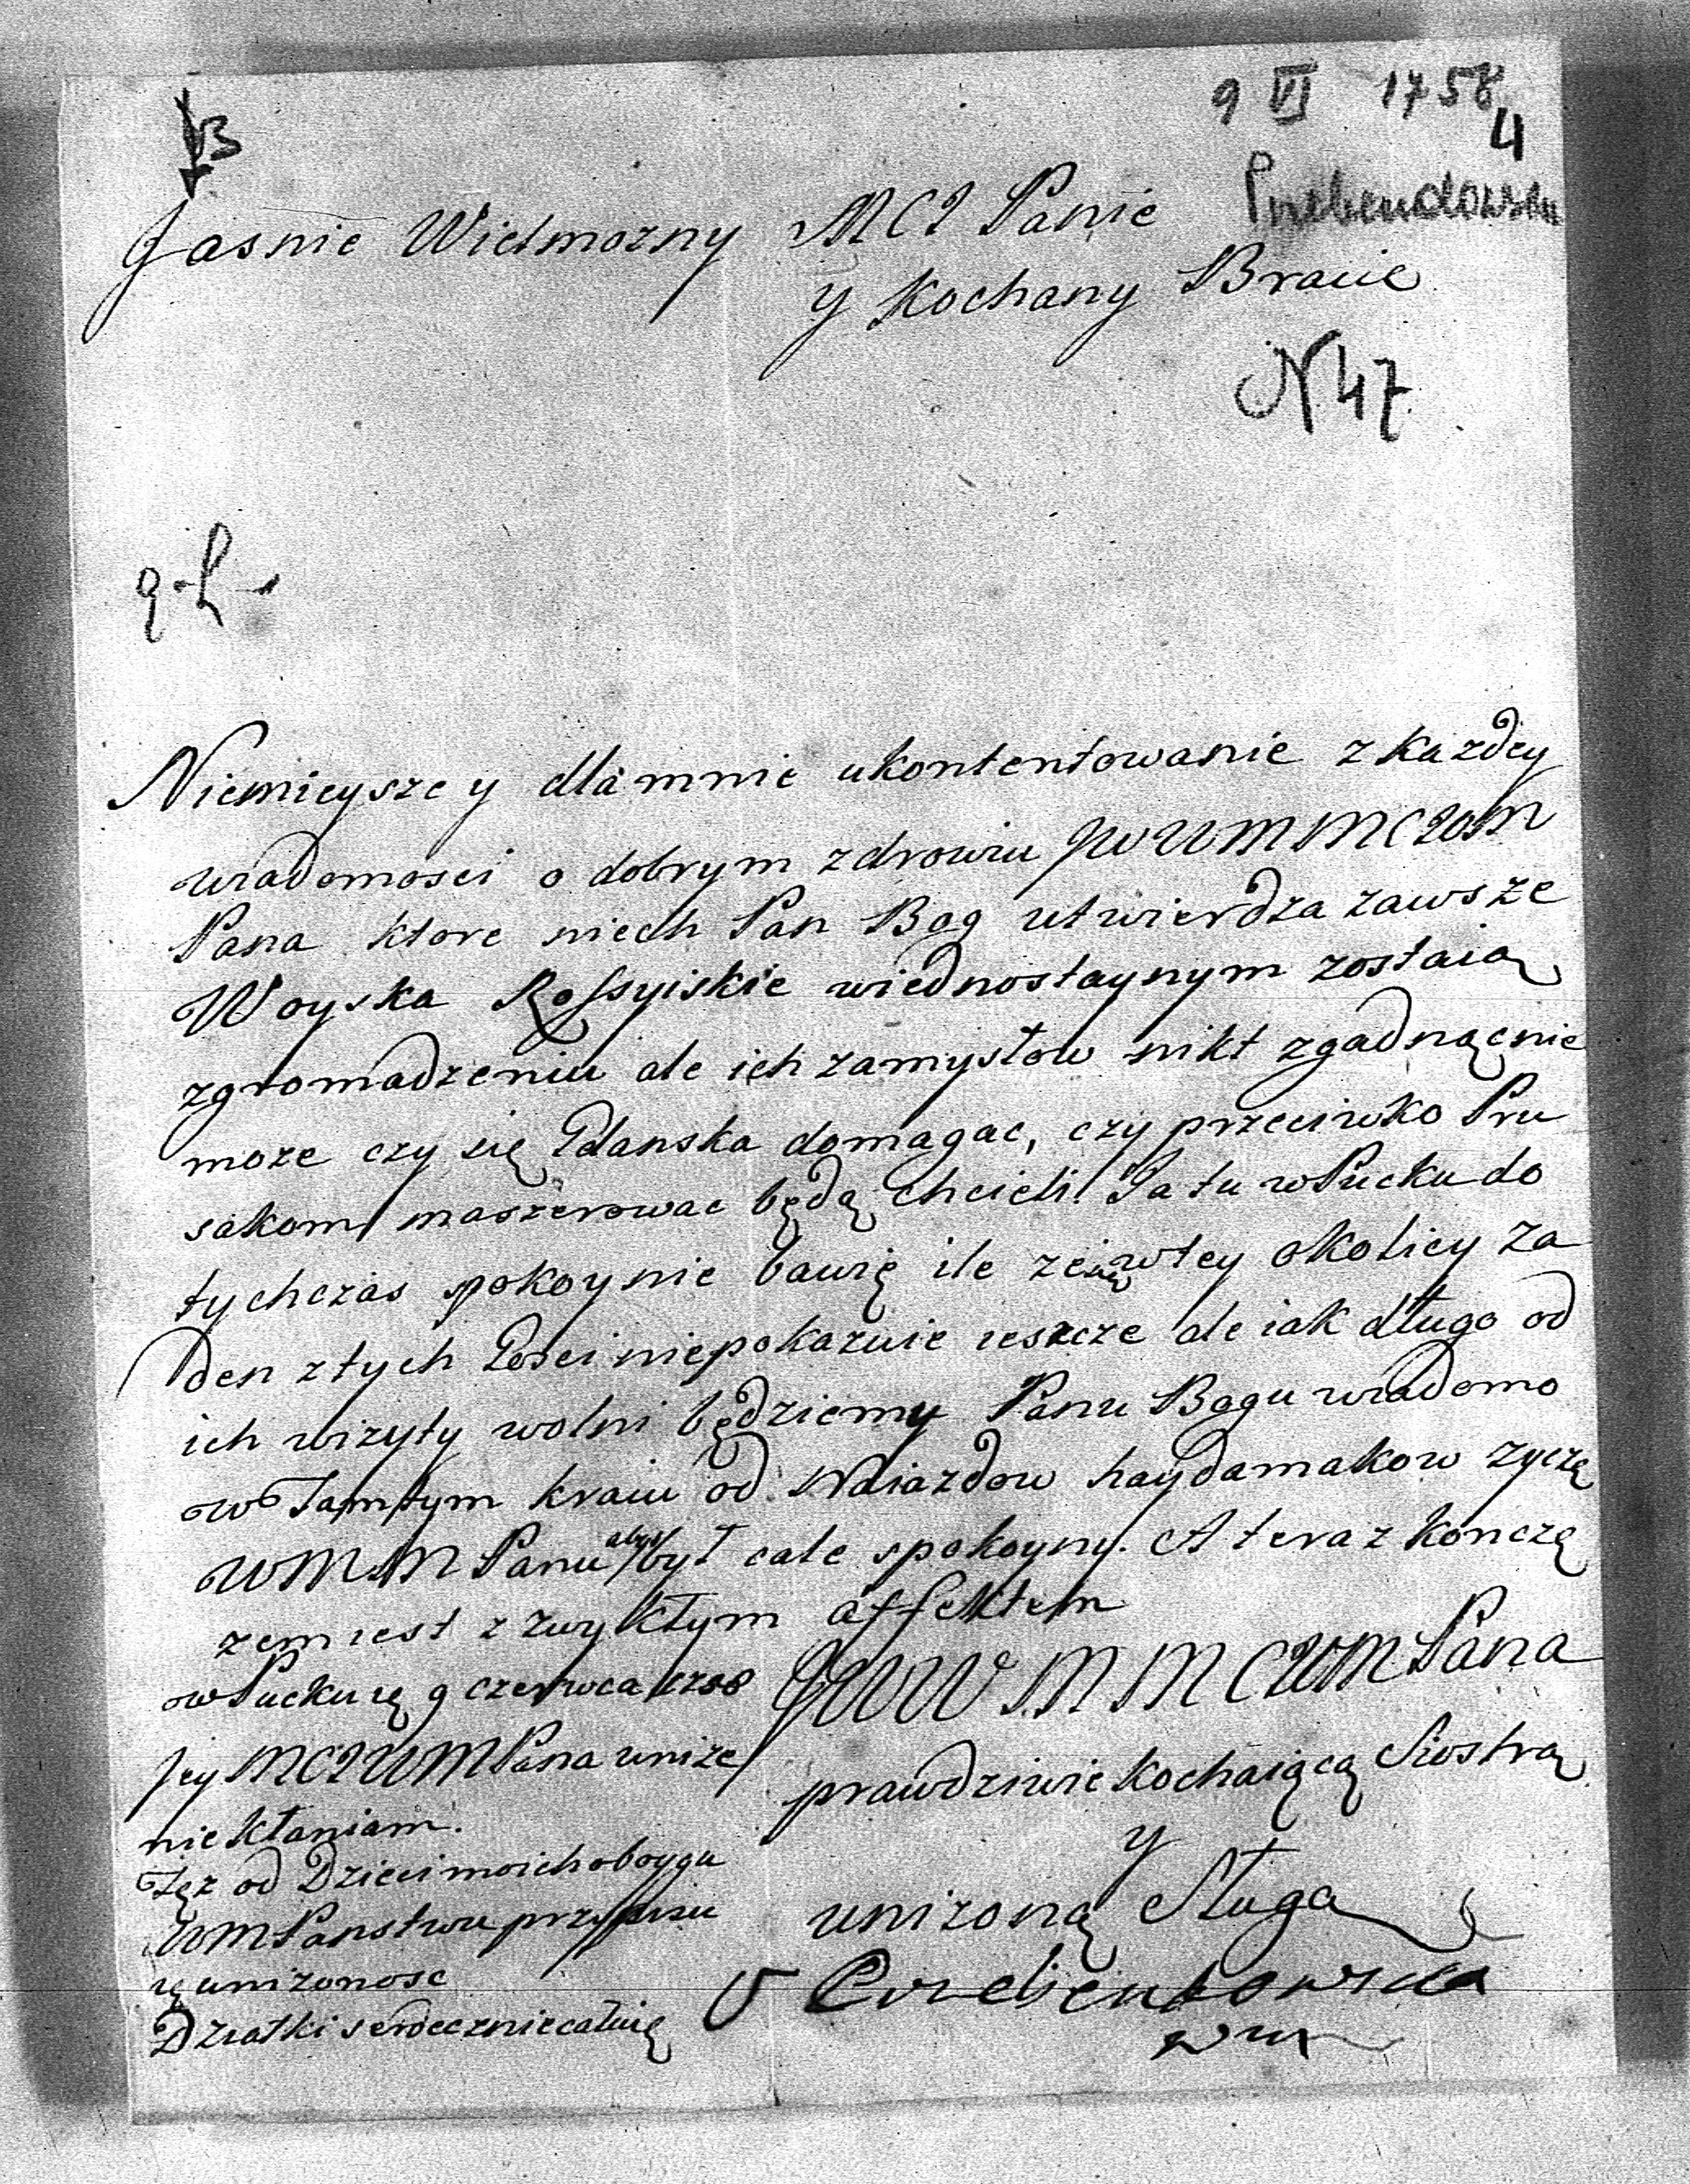 9 VI 1758
4
Przebendowska
Jasnie Wielmozny MCI Panie
y Kochany Bracie
N 47
Niemieysze y dla mnie ukontentowanie z kazdey
wiadomosci o dobrym zdrowiu JWWMMCIWM
Pana ktore niech Pan Bog utwierdza zawsze
Woyska Rossyiskie wiednostaynym zostaią
zgromadzeniu ale ich zamysłow nikt zgadnącnie
moze czy się Gdanska domagac, czy przeciwko Pru
sakom maszerowac będą chcieli Ja tu w Pucku do
tychczas spokoynie bawię ile ze się wtey okolicy za
den ztych Gosci niepokazuie ieszcze ale iak długo od
ich wizyty wolni będziemy Panu Bogu wiadomo
w Tamtym kraiu od Naiazdow haydamakow zyczę
WMM Panu abys był cale spokoyny. A teraz konczę
zem iest z zwykłym affektem
w Pucku ię 9 czerwca 1758
JWWMMCIWM Pana
prawdziwie kochaiącą Siostrą
y
unizoną Sługą
Przebendowska
Jey MCIWM Pana unize
nie kłaniam.
Też od Dzieci moich oboygu
WM Panstwu przypisu
ię unizonosc
Dziatki serdecznie całuię